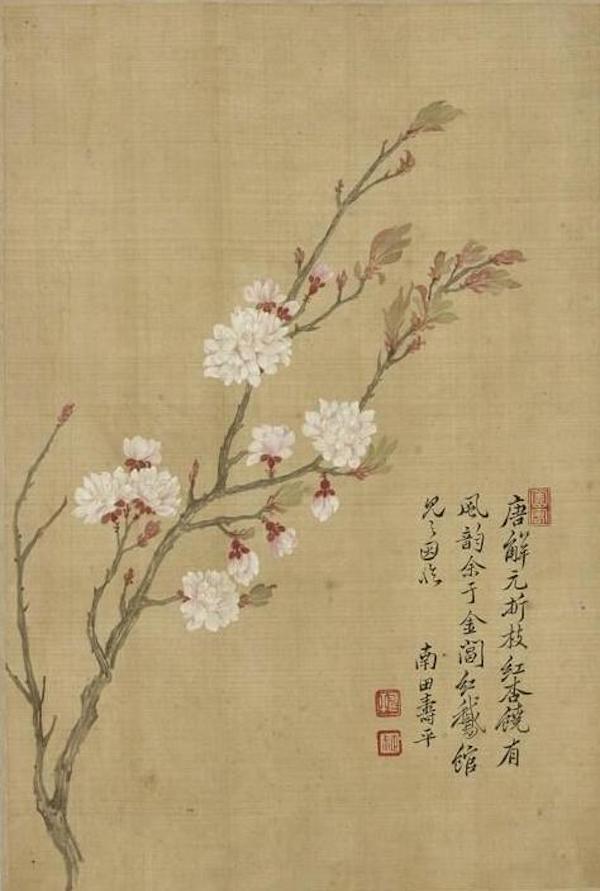 唐解元折枝红杏饒有
風韵余于金閶红鵞館
見之因臨
南田壽平